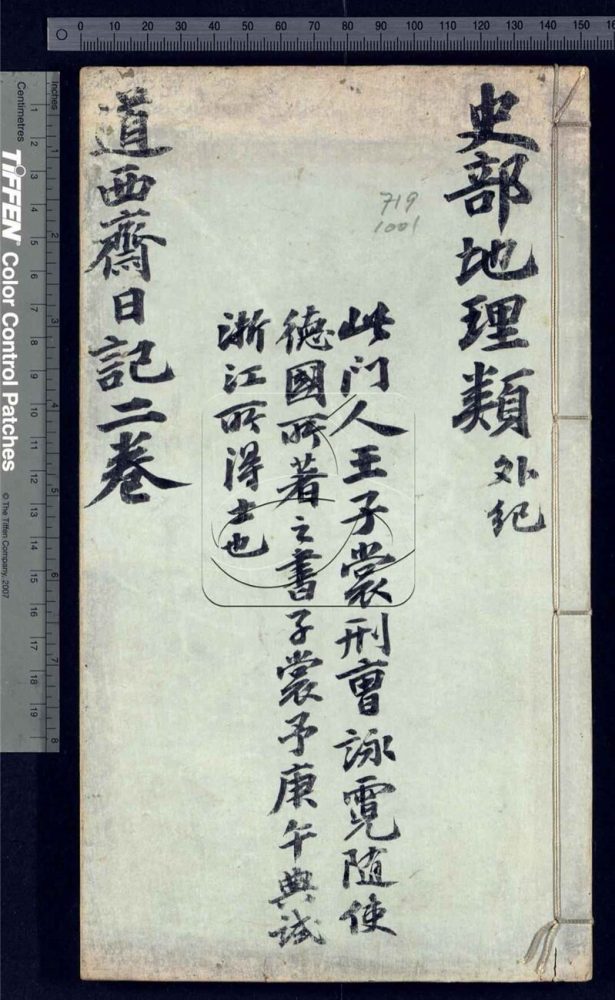 0 10 20 30 40 50 60 70 80 90 100 110 120 130 140 150
史部地理類 外紀
719
1001
此门人王子裳刑曹詠霓随使
德國所著之書子裳予庚午典試
浙江所得士也
道西齋日記二卷
Inches
1 2 3 4 5 6 7 8
Centimetres
1 2 3 4 5 6 7 8 9 10 11 12 13 14 15 16 17 18 19
TIFFEN Color Control Patches
© The Tiffen Company, 2007